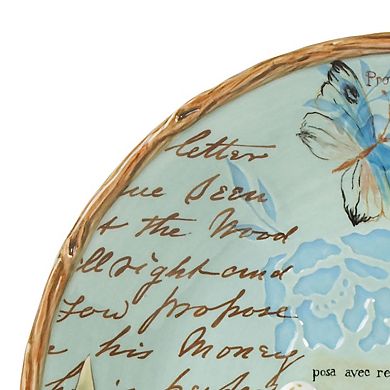 Pro
letter
ue Seen
t the Wood
ll right and
You propose
e his Money
posa avec re